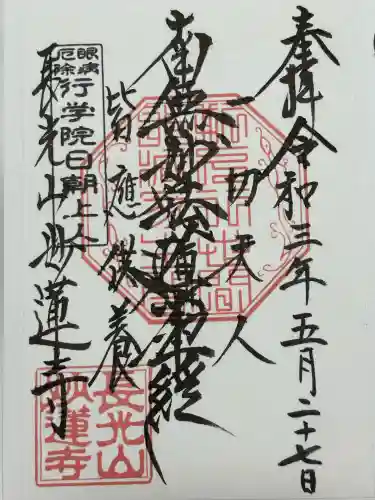 奉拝 令和三年五月二十七日
一切天人
南無妙法蓮華經
皆應供養
眼病
厄除
行学院日朝上人
長光山妙蓮寺
長光山
妙蓮寺